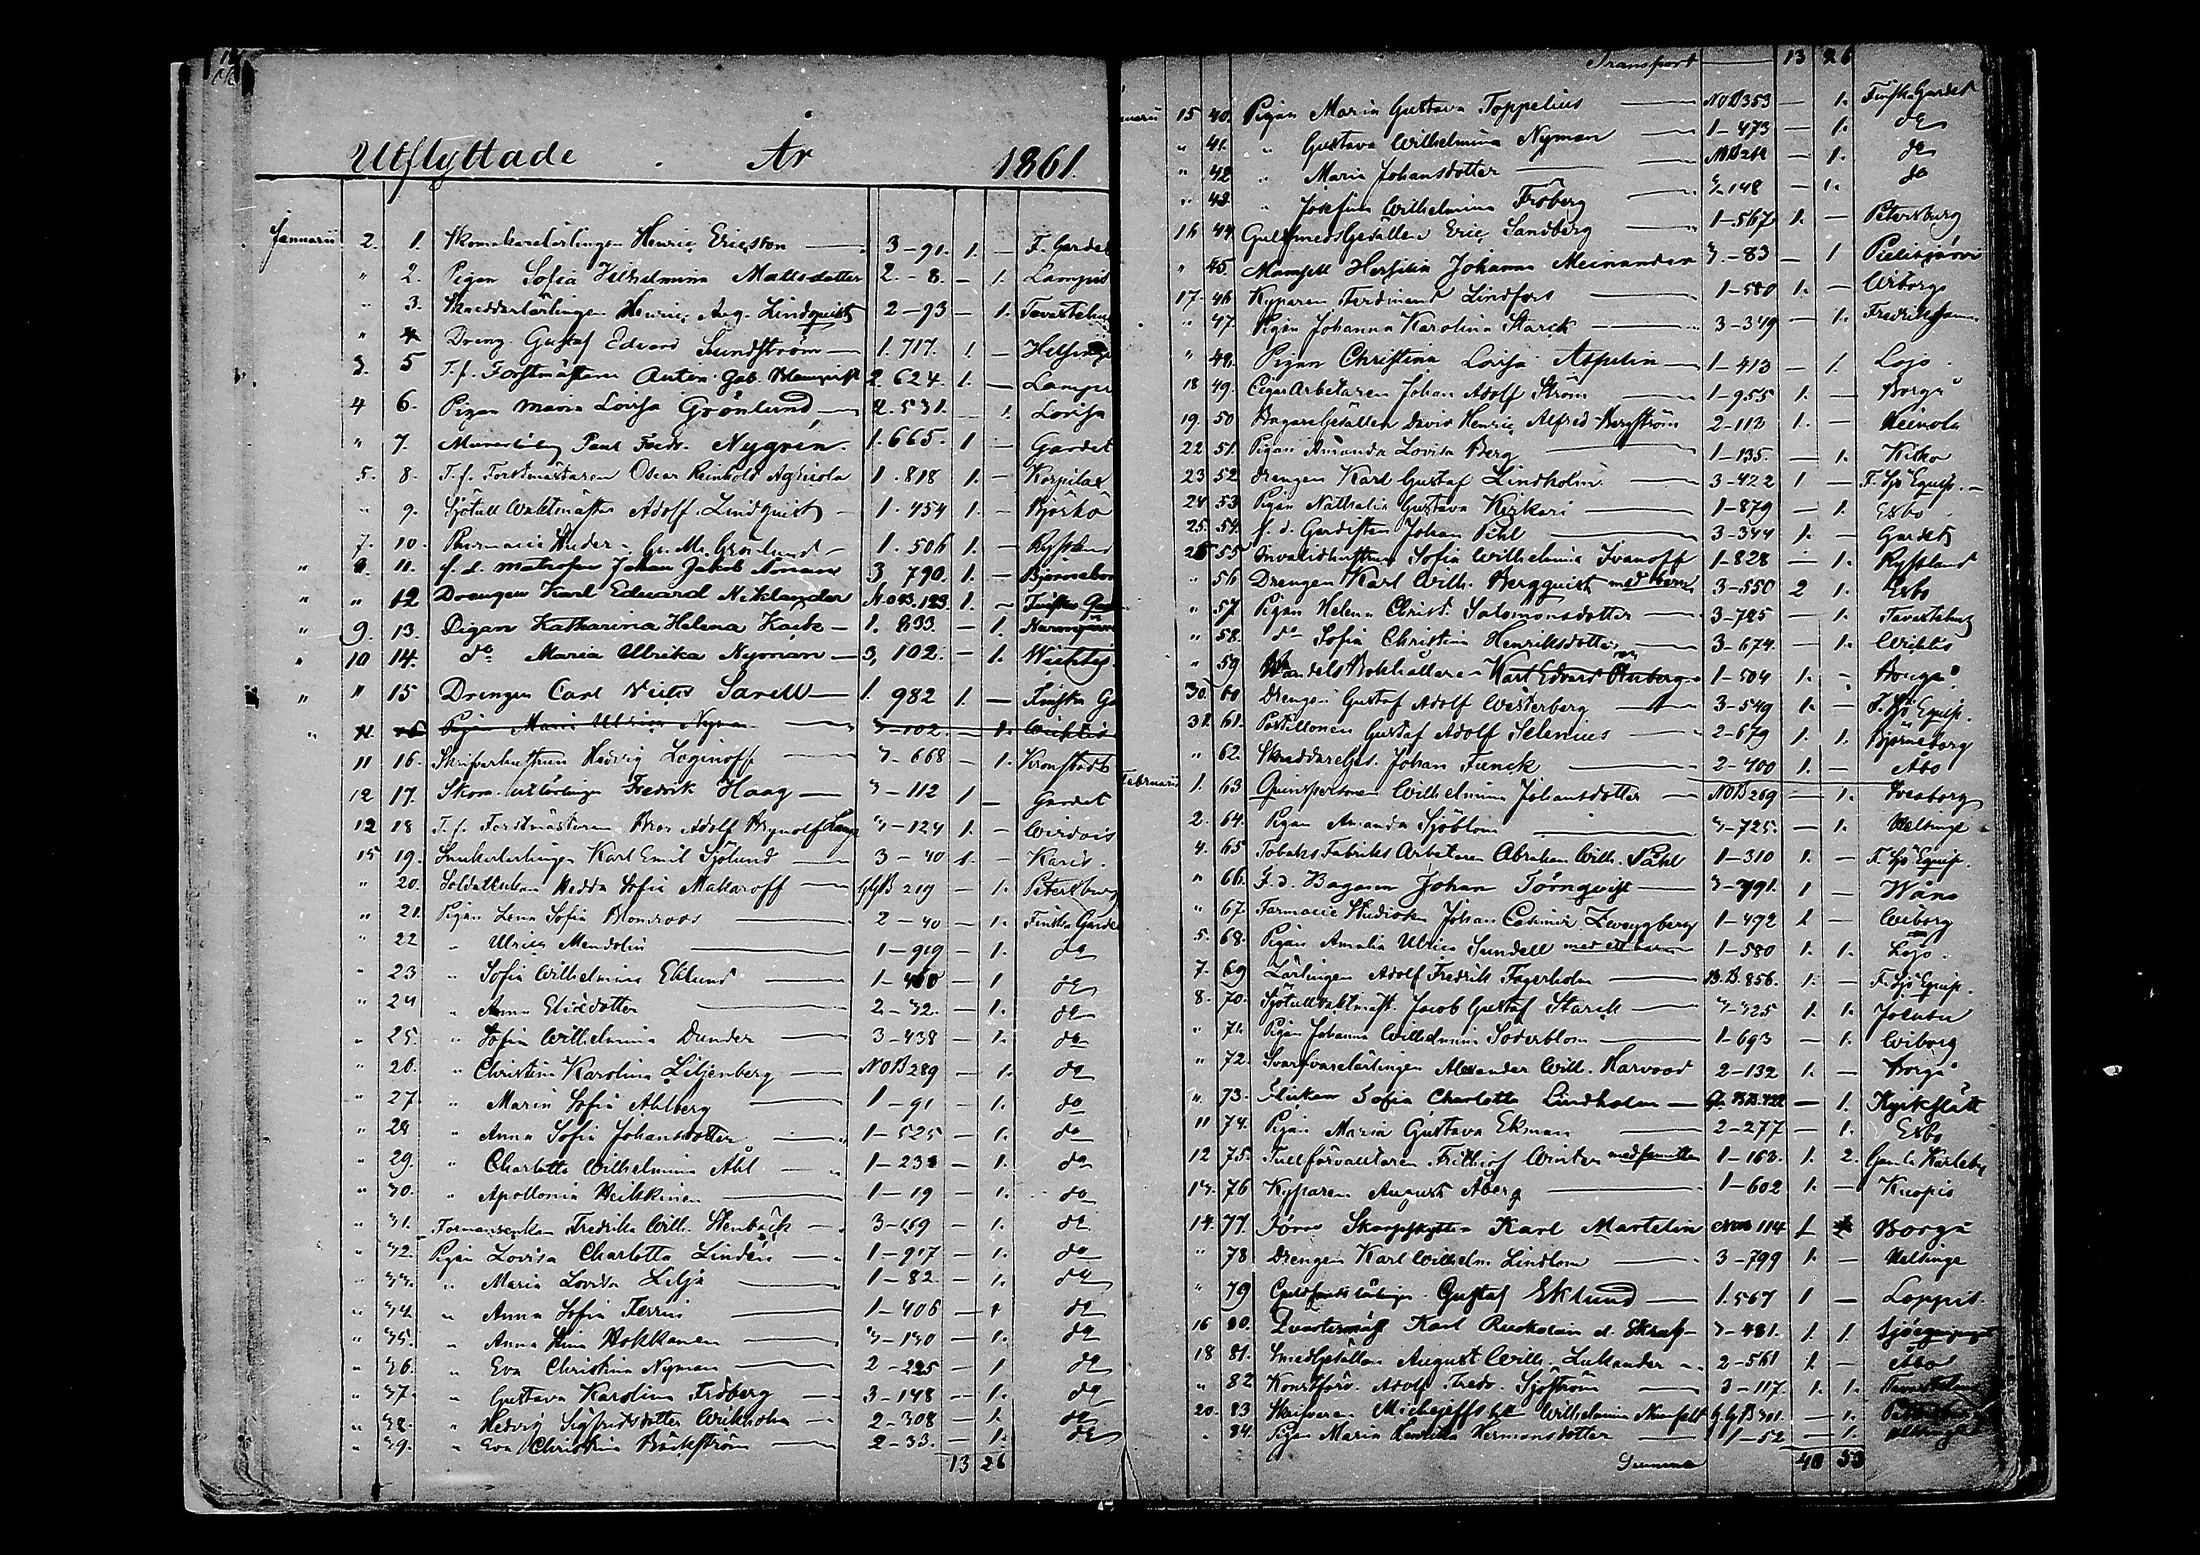 Utflyttade År 1861.
Januarii 2. 1. Skomakarelärlingen Henric Ericsson 3-91. 1. — F. Gardet
" 2. Pigan Sofia Wilhelmina Mattsdotter 2-8. — 1. Lampis
" 3. Skräddarlärlingen Henric Aug. Lindquist 2-93 — 1. Tavastehus
" 4 Dreng. Gustaf Edvard Sundström 1.717. 1. — Helsinge
3. 5 T.f. Forstmästaren Anton Gab. Blomqvist 2.624. 1. —
4 6. Pigan Maria Lovisa Grönlund 2.531. 1. Lovisa
" 7. Paul Fredr. Nygrén. 1.665. 1 — Gardet
5. 8. T.f. Forstmästaren Oscar Reinhold Agricola 1.818 1. — Korpilax
" 9. Sjötull Vaktmästar Adolf Lindquist 1.454 1. — Björkö
7. 10. Pharmacie Studer. G. M. Grönlund 1.506 1. — Ryssland
" 8. 11. f.d. Matrosen Johan Jakob 3 790. 1. — Björneborg
" " 12 Drengen Karl Edvard Niklander N.O.B.123 1. — Finska Gard
" 9. 13. Pigan Katharina Helena Kock 1. 833. — 1.
" 10 14. do Maria Ulrika Nyman 3, 102. — 1. Wichtis
" " 15 Drengen Carl Sarell 1. 982 1. — Finska Ga
" 11. 16 Pigan Maria Ulrica Nyman 3-102. — 1. Wichtis
11 16. Skrifvarhustrun Hedvig Loginoff 3-668 — 1. Kronstadt
12 17. Skom. lärlingen Fredrik Haag 3-112 1 — Gardet
12 18 T.f. Forstmästaren Bror Adolf Brynolf Lange 3-124 1. — Wirdois
15 19. Snickarlärlingen Karl Emil Sjölund 3-40 1. — Karis.
" 20. Soldatenkan Hedda Sofia Makaroff GGB 219 — 1. Petersburg
" 21. Pigan Lena Sofia Blomroos 2-40 — 1. Finska Garde
" 22 " Ulrica Mendolin 1-919 — 1. do
" 23 " Sofia Wilhelmina Eklund 1-400 — 1 do
" 24 " Anna Elisdotter 2-32. — 1. do
" 25. " Sofia Wilhelmina Dunder 3-438 — 1. do
" 26. " Christina Karolina Liljenberg NOB 289 — 1. do
" 27. " Maria Sofia Ahlberg 1-91 — 1. do
" 28 " Anna Sofia Johansdotter 1-525 — 1. do
" 29. " Charlotta Wilhelmina Åhl 1-233 — 1. do
" 30. " Apollonia Heikkinen 1-19 — 1. do
" 31. Formansenkan Fredrika Wilh. Stenbäck 3-169 — 1. do
" 32. Pigan Lovisa Charlotta Lindén 1-917 — 1. do
" 33. " Maria Lovisa Lilja 1-82. — 1. do
" 34. " Anna Sofia Ferrin 1-406 — 1 do
" 35. " Anna Stina Hokkanen 3-130 — 1. do
" 36. " Eva Christina Nyman 2-225 — 1 do
" 37. " Gustava Karolina Fröberg 3-148 — 1. do
" 38. " Hedvig Sigfridsdotter Wrikholm 2-308 — 1. do
" 39. " Eva Christina Bäckström 2-33. — 1. do
13 26
Transport 13 26
Januarii 15 40. Pigan Maria Gustava Toppelius NOB353 — 1. Finska Gardet
" 41. " Gustava Wilhelmina Nyman 1-473 — 1. do
" 42 " Maria Johansdotter NOB — 1. do
" 43. " Josefina Wilhelmina Fröberg 3-148 — 1. do
16 44 Guldsmeds Gesällen Eric Sandberg 1-567 1. — Petersburg
" 45. Mamsell Hersilia Johanna Meinander 3-83 — 1 Pielisjärvi
17. 46 Kyparen Ferdinand Lindfors 1-580 1. — Wiborg
" 47. Pigan Johanna Karolina Starck 3-349 — 1. Fredrikshamn
" 48. Pigan Christina Lovisa Aspelin 1-413 — 1. Lojo.
18 49. Cigarrarbetaren Johan Adolf Ström 1-955 1. — Borgå
19. 50 Bagare Gesällen David Henric Alfred Bergström 2-113 1. — Heinola
22 51. Pigan Amanda Lovisa Berg 1-135 — 1. Kisko
23 52 Drengen Karl Gustaf Lindholm 3-422 1 — F. Sjö Equip.
24 53 Pigan Nathalia Gustava Kiskari 1-879 — 1. Esbo
25. 54. f.d. Gardisten Johan Pihl 3-344 1. — Gardet
26 55 Invalidhustrun Sofia Wilhelmina Ivanoff 1-828 — 1. Ryssland
" 56 Drengen Karl Wilh. Bergquist med barn 3-550 2 1. Esbo
" 57 Pigan Helena Christ. Salomonsdotter 3-785 — 1. Tavastehus
" 58. do Sofia Christina Henriksdotter 3-674. — 1. Wichtis
" 59 Handels Bokhållare Karl Edvard Öhrberg 1-504 1. — Borgå
30 60 Drengen Gustaf Adolf Westerberg 3-549 1. — F. Sjö Equip.
31. 61. Postillonen Gustaf Adolf Selenius 2-679 1. 1. Björneborg
" 62. Skräddareges. Johan Funck 2-400 1. — Åbo
Februarii 1. 63 Qvinspersonen Wilhelmina Johansdotter NOB 269 — 1. Sveaborg
2. 64. Pigan Amanda Sjöblom 3-725. — 1. Helsinge
4. 65 Tobaks Fabriks Arbetaren Abraham Wilh. Påhl 1-310 1. — F. Sjö Equip.
" 66. F.d. Bagaren Johan Törnqvist 3-791. 1 — Wånå
" 67. Farmacie Studiosen Johan Casimir Zweygberg 1-472 1 — Wiborg
5. 68. Pigan Amalia Ulrica Sundell med ett barn 1-580 1. 1. Lojo.
7. 69 Lärlingen Adolf Fredrik Fagerholm B.B.856. 1. — F. Sjö Equip.
8. 70. Sjötullvaktmäst. Jacob Gustaf Starck 3-325 1. 1.
" 71. Pigan Johanna Wilhelmina Söderblom 1-693 — 1. Wiborg
" 72. Svarfvarelärlingen Alexander Wilh. Harvood 2-132 1. — Borgå
" 73. Flickan Sofia Charlotta Lindholm — 1. Kyrkslätt
11 74. Pigan Maria Gustava Ekman 2-277 — 1. Esbo
12 75. Tullförvaltaren Frithiof Winter med familien 1-163. 1. 2. Gamla Karleby
13. 76 Kyparen August Åberg 1-602 1. — Kuopio
14. 77. Förre Skarpskytten Karl Martelin 114 1 Borgå
" 78 Drengen Karl Wilhelm Lindlom 3-799 1. — Helsinge
" 79 Guldsmedslärling. Gustaf Eklund 1.567 1 — Loppis.
16 80. Karl 3-481. 1. 1.
18 81. Smedgesällen August Wilh. Lukander 2-561 1. — Åbo
" 82 Konstförv. Adolf Fredr. Sjöström 3-117. 1. 1. Tavastehus
20. 83 Skrifvaren Michejeffs Wilhelmina G.G.B 301. — 1.
" 84. Pigan Maria Henrika Hermansdotter 1-52 — 1. Helsinge
Summa 40 53